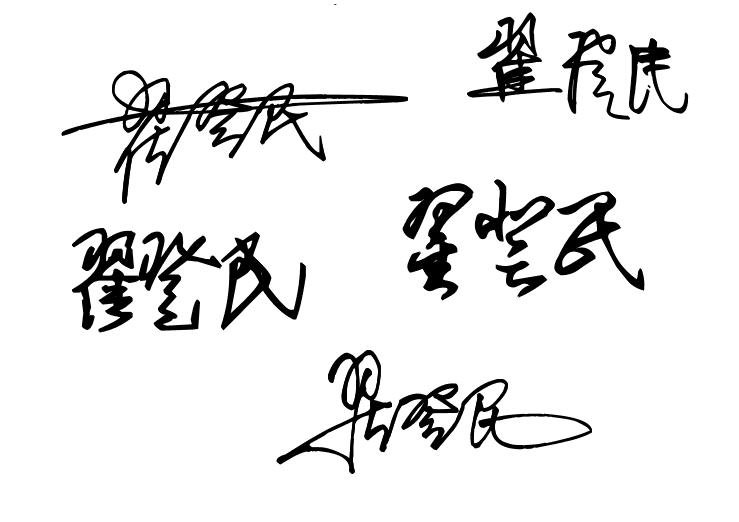 翟登民
翟登民
翟登民
翟登民
翟登民